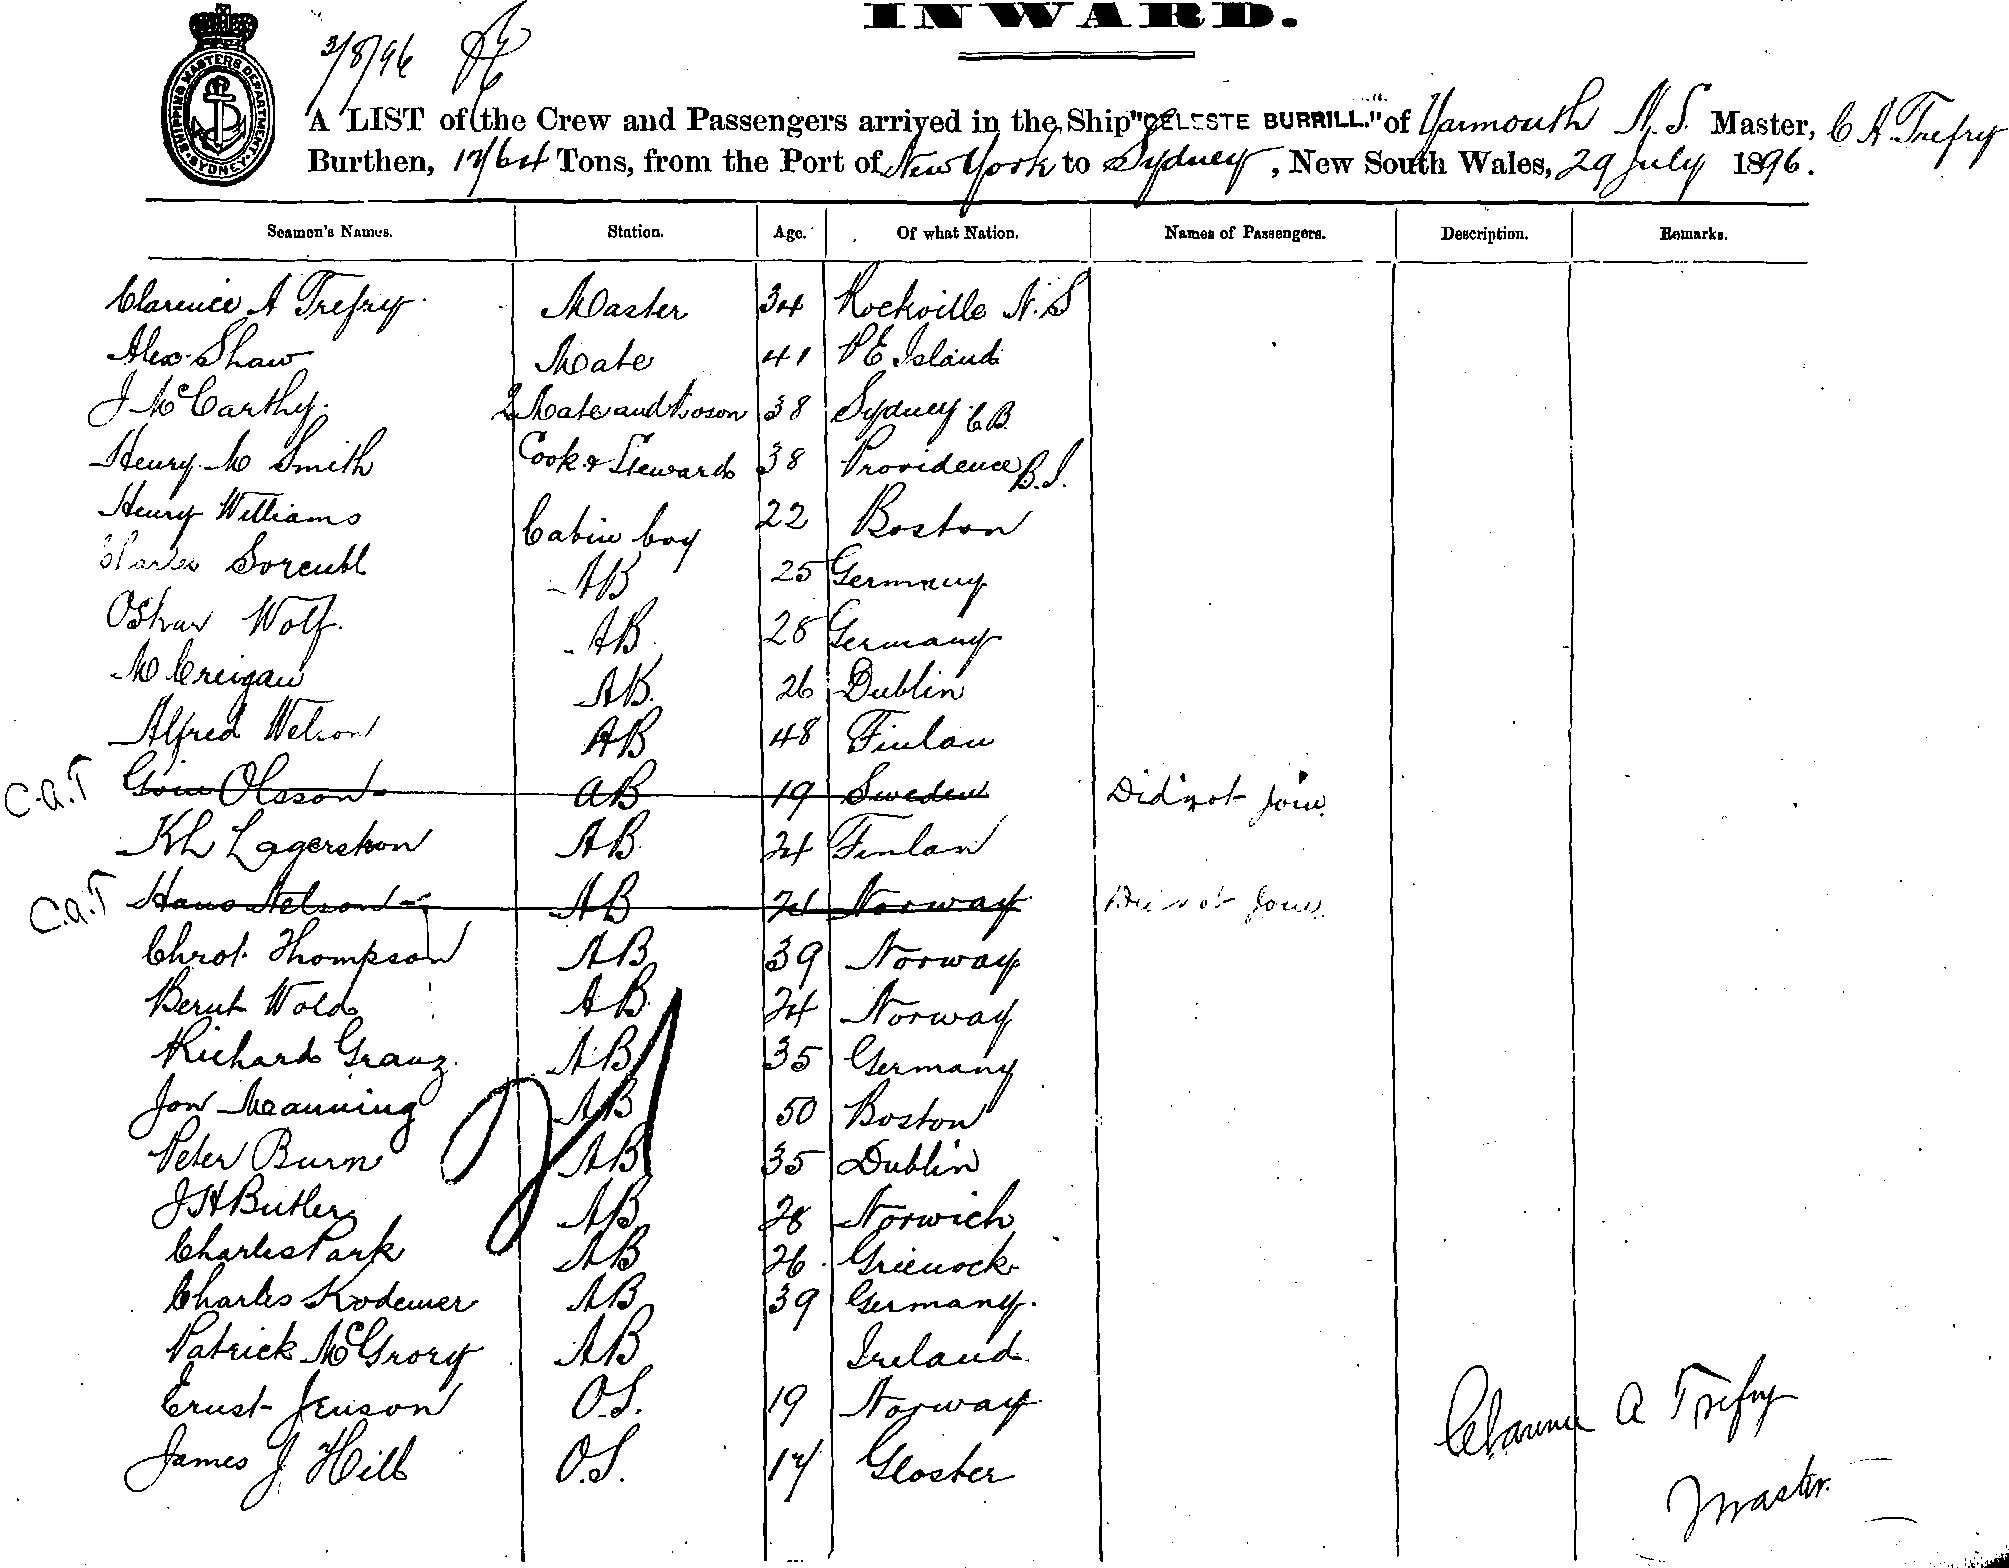 INWARD.
3/8/96
SHIPPING MASTERS DEPARTMENT SYDNEY
A LIST of the Crew and Passengers arrived in the Ship "CELESTE BURRILL." of Yarmouth N.S. Master, C A Trefry
Burthen, 1764 Tons, from the Port of New York to Sydney, New South Wales, 29 July 1896.
Seamen's Names. Station. Age. Of what Nation. Names of Passengers. Description. Remarks.
Clarence A Trefry Master 34 Rockville N.S
Alex Shaw Mate 41 P E Island
J McCarthy 2 Mate and Boson 38 Sydney C.B.
Henry M Smith Cook & Steward 38 Providence R.I.
Henry Williams Cabin boy 22 Boston
Charles AB 25 Germany
Oskar Wolf. AB 28 Germany
M Creigan AB. 26 Dublin
Alfred Welson AB 48 Finlan
C.A.T Olsson AB 19 Sweden Did not join.
Kh Lagerstron AB 24 Finlan
C.A.T Hans Nelson AB 21 Norway Did not join.
Chrst. Thompson AB 39 Norway
Bernt Wold AB 24 Norway
Richard Granz. AB 35 Germany
21
Jon Manning AB 50 Boston
Peter Burn AB 35 Dublin
J H Butler AB 28 Norwich
Charles Park AB 26 Grienock
Charles Rodemer AB 39 Germany.
Patrick McGrory AB Ireland
Ernst Jenson O.S. 19 Norway
James J Hill O.S. 17 Gloster
Clarence A Trefry
Master.